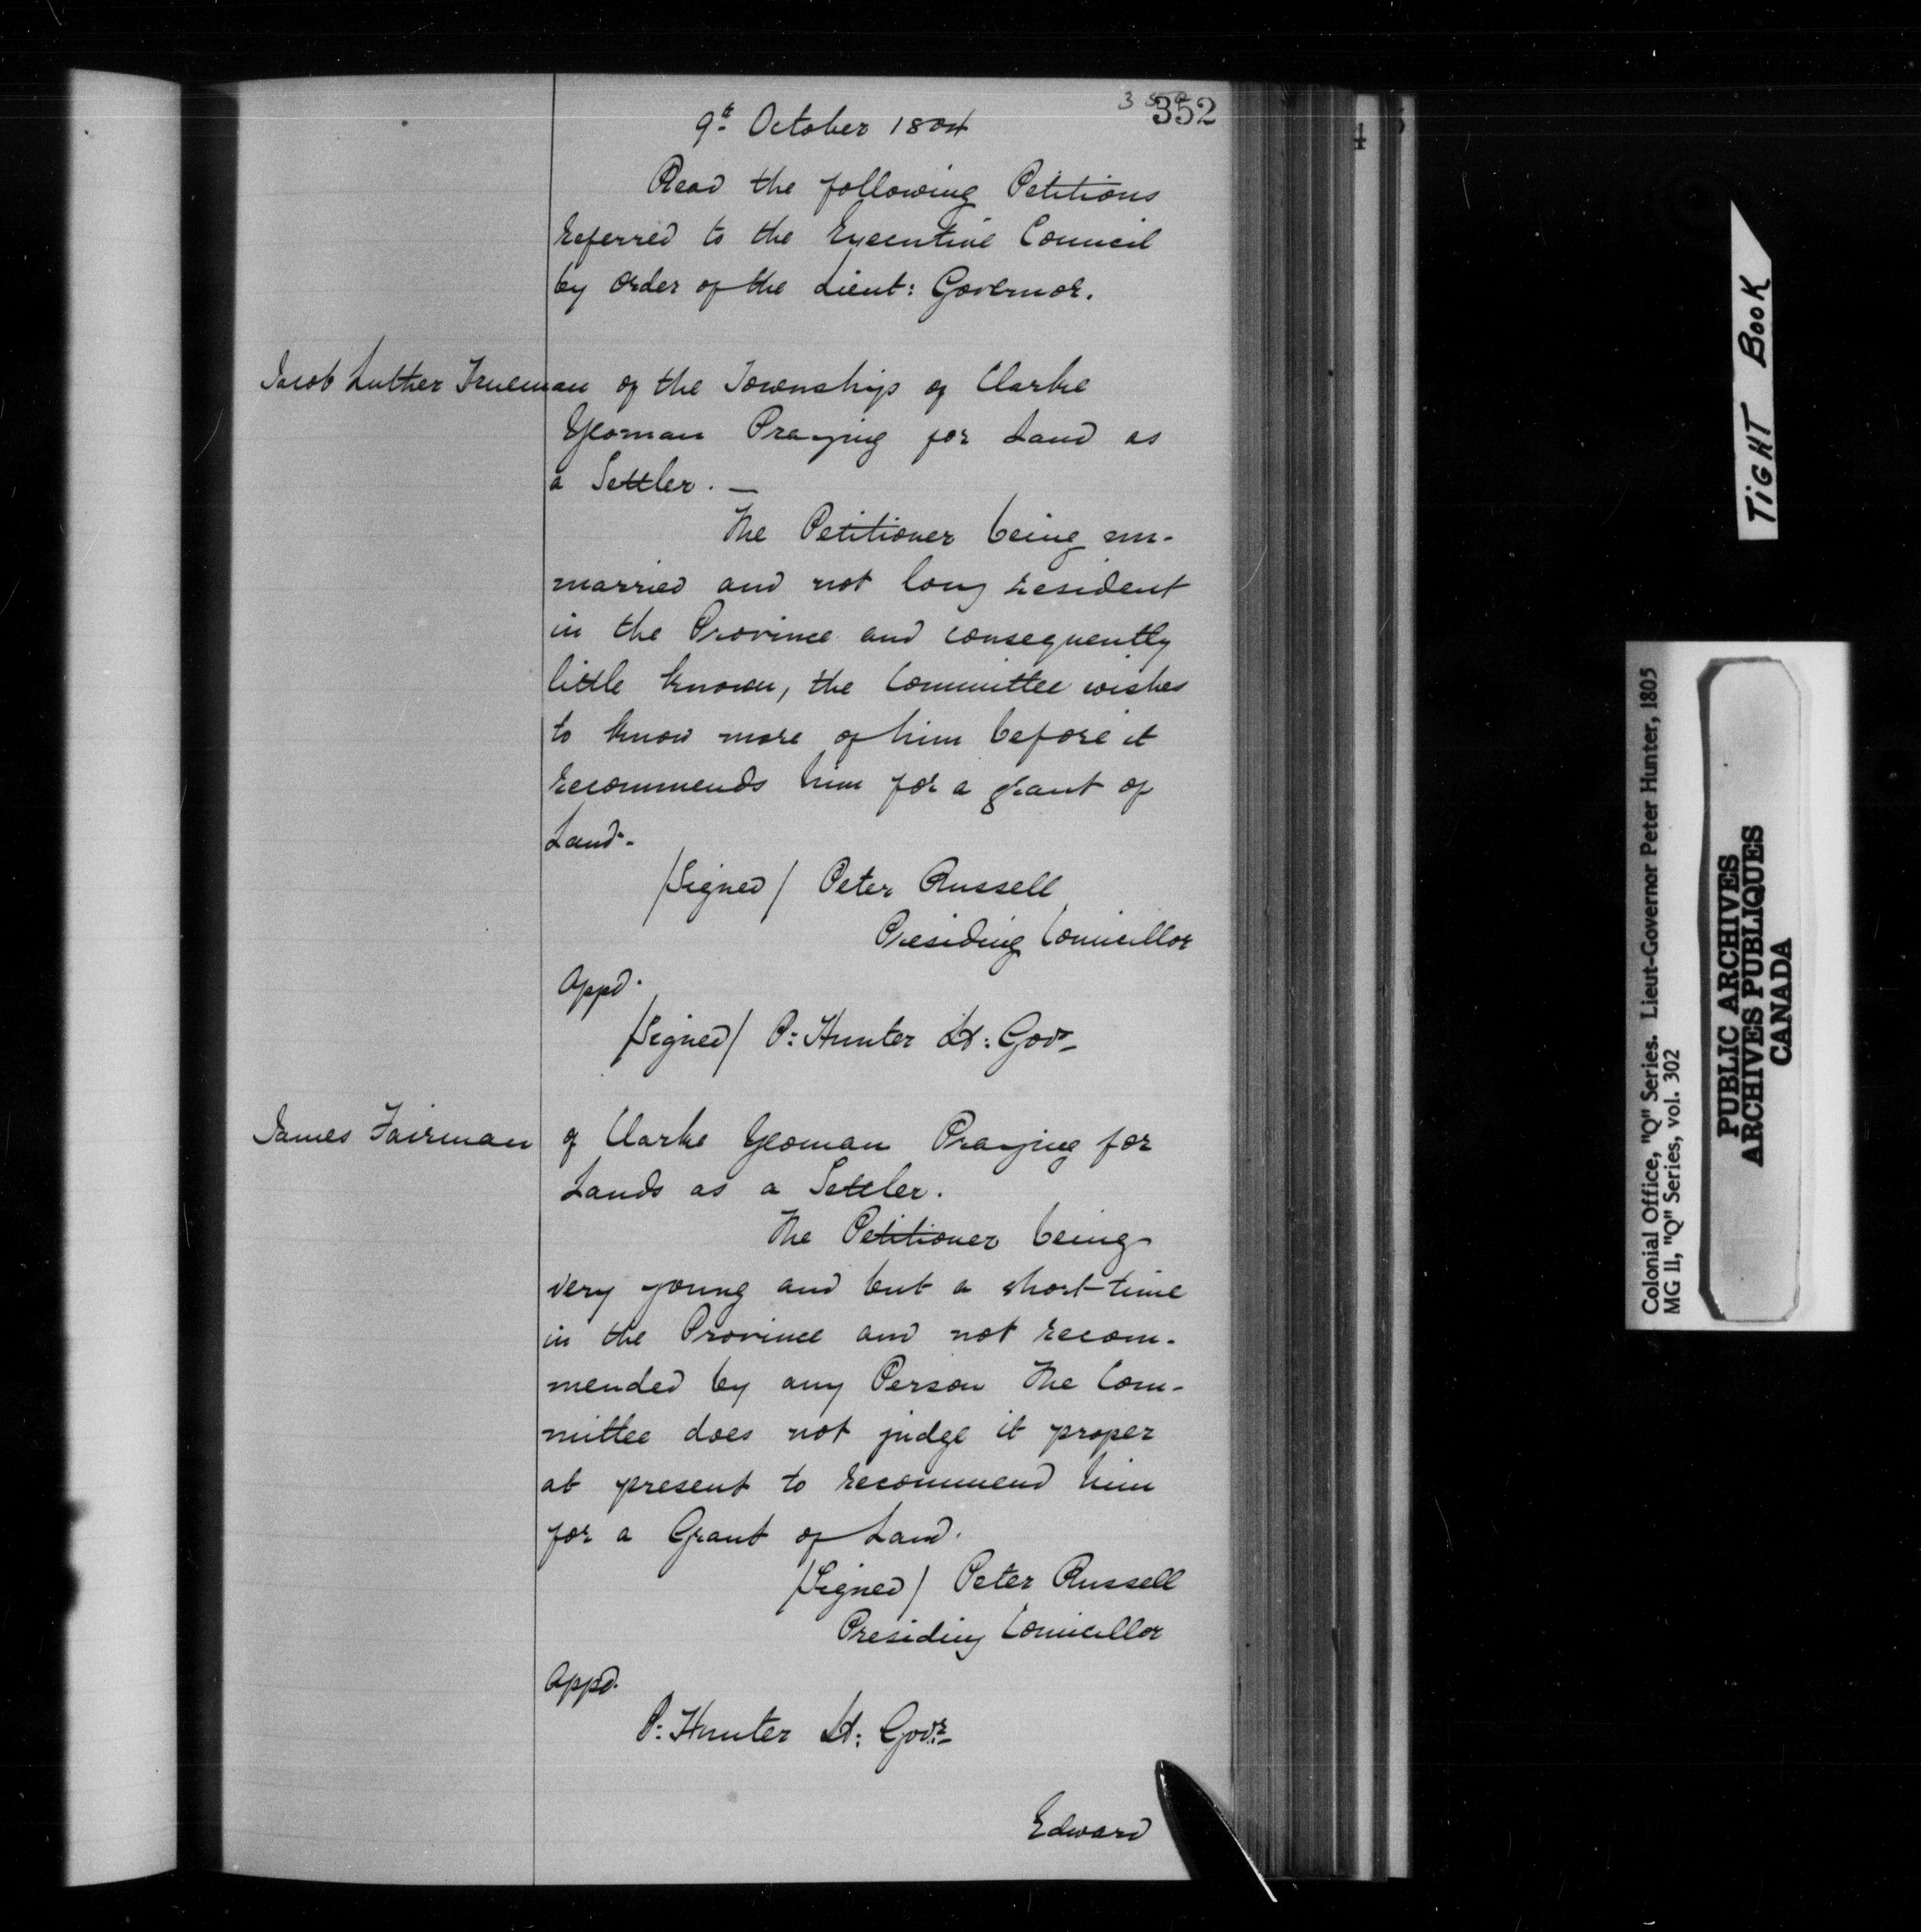 352
9th October 1804
Read the following Petitions
referred to the Executive Council
by order of the Lieut: Governor.
Jacob Luther Trueman of the Township of Clarke
Yeoman Praying for Land as
a Settler. —
The Petitioner being un-
married and not long resident
in the Province and consequently
little known, the Committee wishes
to know more of him before it
recommends him for a grant of
Land.-
/Signed/ Peter Russell
Presiding Councillor
Appd.
/Signed/ P: Hunter Lt: Govr
James Fairman of Clarke Yeoman Praying for
Lands as a Settler.
The Petitioner being
very young and but a short time
in the Province and not recom-
mended by any Person The Com-
mittee does not judge it proper
at present to recommend him
for a Grant of Land.
/Signed/ Peter Russell
Presiding Councillor
Appd.
P: Hunter Lt: Govr
Edward
4
TIGHT BOOK
Colonial Office, "Q" Series. Lieut-Governor Peter Hunter, 1805
MG 11, "Q" Series, vol. 302
PUBLIC ARCHIVES
ARCHIVES PUBLIQUES
CANADA